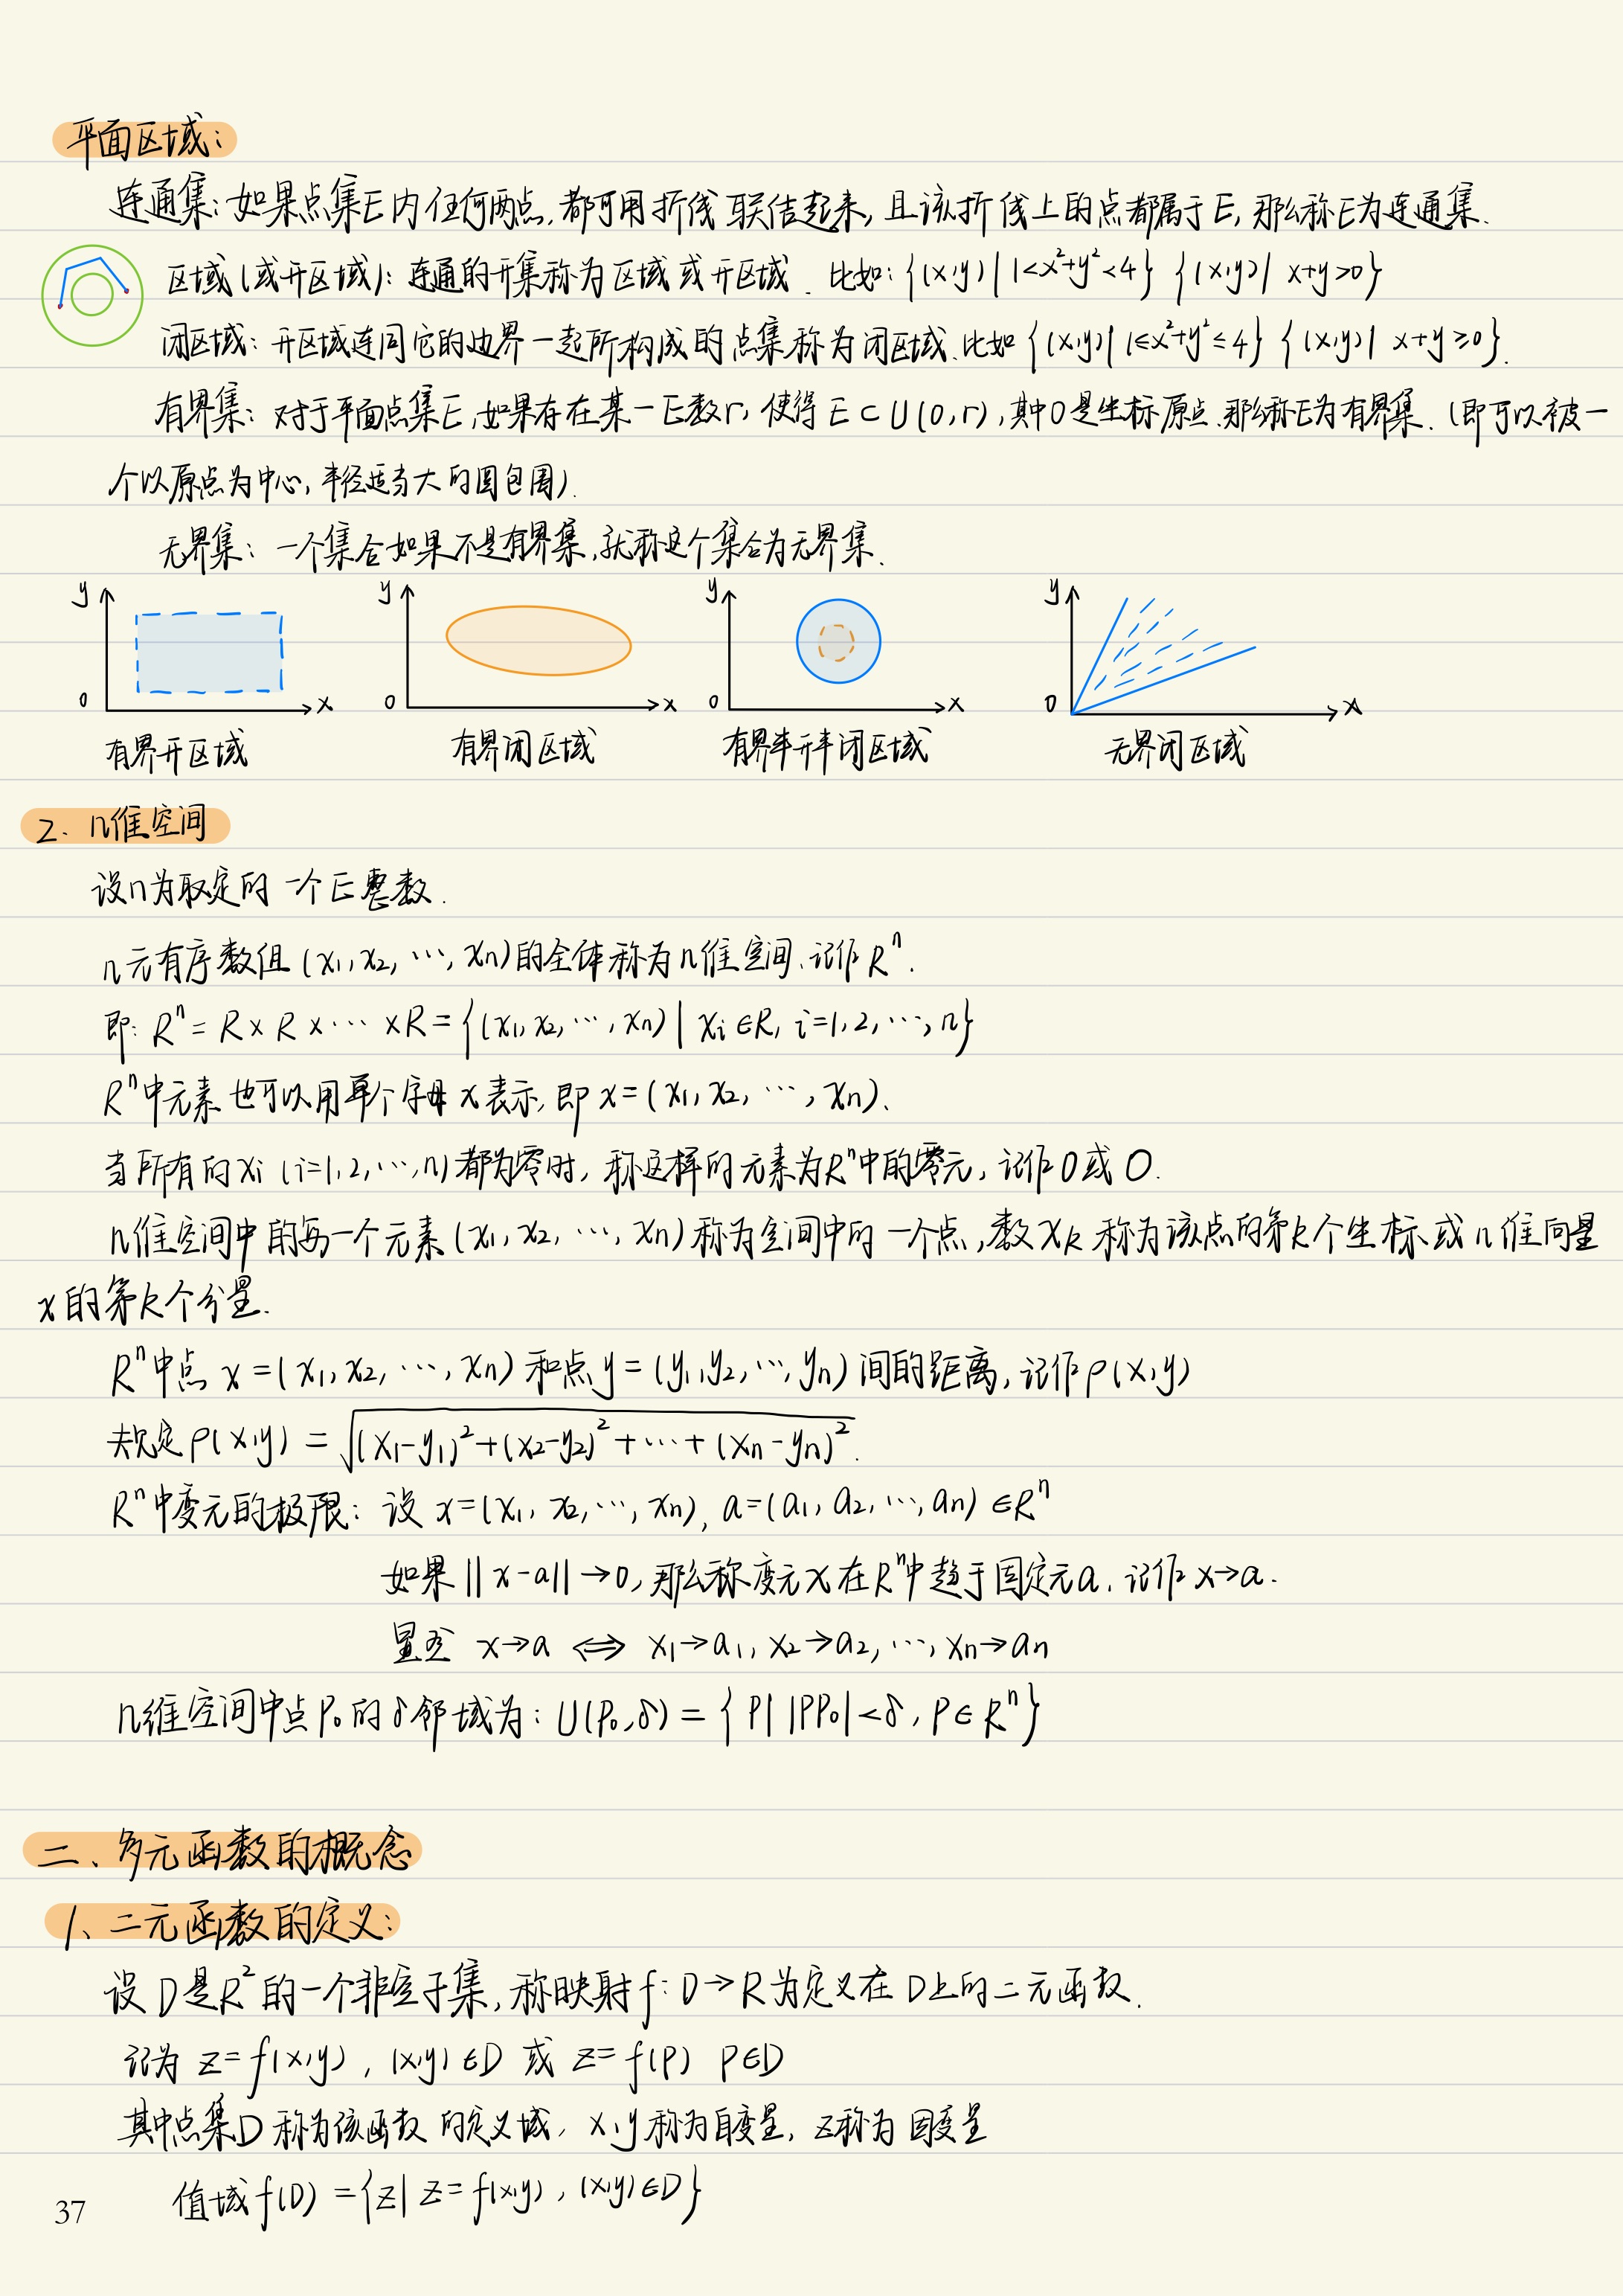 平面区域：
连通集：如果点集E内任何两点，都可用折线联结起来，且该折线上的点都属于E，那么称E为连通集.
区域(或开区域)：连通的开集称为区域或开区域. 比如：{(x,y)| 1<x²+y²<4} {(x,y)| x+y>0}
闭区域：开区域连同它的边界一起所构成的点集称为闭区域.比如{(x,y)| 1≤x²+y²≤4} {(x,y)| x+y≥0}.
有界集：对于平面点集E,如果存在某一正数r,使得E⊂U(O,r),其中O是坐标原点.那么称E为有界集.(即可以被一
个以原点为中心,半径适当大的圆包围).
无界集：一个集合如果不是有界集,就称这个集合为无界集.
y 0 x y 0 x y 0 x y 0 x
有界开区域 有界闭区域 有界半开半闭区域 无界闭区域
2. n维空间
设n为取定的一个正整数.
n元有序数组(x₁,x₂,…,xₙ)的全体称为n维空间,记作Rⁿ.
即: Rⁿ=R×R×…×R={(x₁,x₂,…,xₙ)| xᵢ∈R, i=1,2,…,n}
Rⁿ中元素也可以用单个字母x表示,即x=(x₁,x₂,…,xₙ).
当所有的xᵢ (i=1,2,…,n)都为零时,称这样的元素为Rⁿ中的零元,记作0或O.
n维空间中的每一个元素(x₁,x₂,…,xₙ)称为空间中的一个点,数xₖ称为该点的第k个坐标或n维向量
x的第k个分量.
Rⁿ中点x=(x₁,x₂,…,xₙ)和点y=(y₁,y₂,…,yₙ)间的距离,记作ρ(x,y)
规定ρ(x,y)=√((x₁-y₁)²+(x₂-y₂)²+…+(xₙ-yₙ)²).
Rⁿ中变元的极限：设x=(x₁,x₂,…,xₙ), a=(a₁,a₂,…,aₙ)∈Rⁿ
如果||x-a||→0,那么称变元x在Rⁿ中趋于固定元a,记作x→a.
显然 x→a ⟺ x₁→a₁,x₂→a₂,…,xₙ→aₙ
n维空间中点P₀的δ邻域为：U(P₀,δ)={P| |PP₀|<δ,P∈Rⁿ}
二、多元函数的概念
1、二元函数的定义：
设D是R²的一个非空子集,称映射f:D→R为定义在D上的二元函数.
记为z=f(x,y),(x,y)∈D 或 z=f(P) P∈D
其中点集D称为该函数的定义域,x,y称为自变量,z称为因变量
值域f(D)={z| z=f(x,y),(x,y)∈D}
37